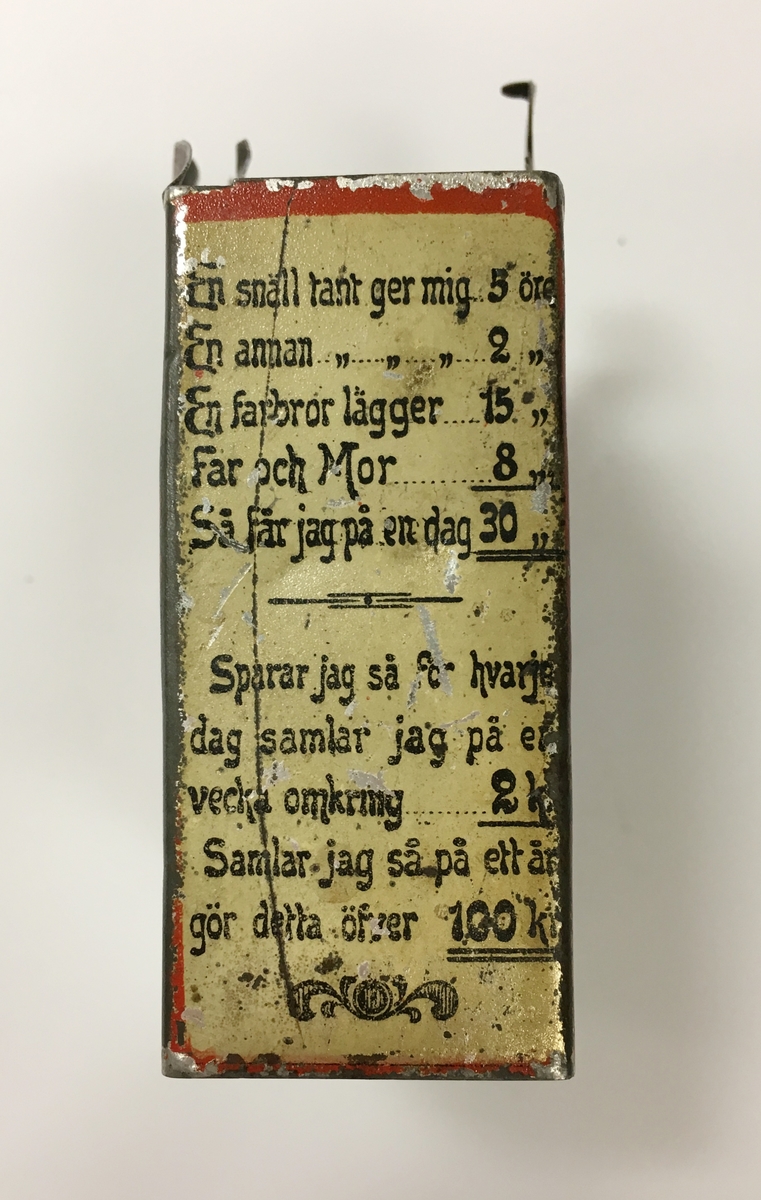 En snäll tant ger mig..5 öre
En annan..„....„....„....2 „
En farbror lägger....15 „
Far och Mor...........8 „
Så får jag på en dag 30 „
Sparar jag så för hvarje
dag samlar jag på en
vecka omkring........2 k
Samlar jag så på ett år
gör detta öfver 100 kr